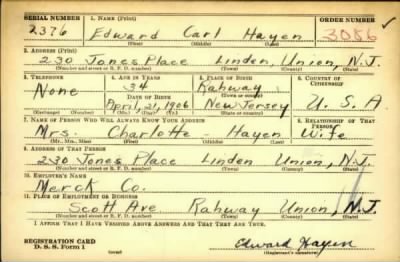 SERIAL NUMBER 1. NAME (Print) ORDER NUMBER
2376 Edward Carl Hayen 3086
(First) (Middle) (Last)
2. ADDRESS (Print)
230 Jones Place Linden, Union, N.J.
(Number and street or R. F. D. number) (Town) (County) (State)
3. TELEPHONE 4. AGE IN YEARS 5. PLACE OF BIRTH 6. COUNTRY OF CITIZENSHIP
None 34 Rahway
DATE OF BIRTH (Town or county)
April, 21, 1906 New Jersey U. S. A
(Exchange) (Number) (Mo.) (Day) (Yr.) (State or country)
7. NAME OF PERSON WHO WILL ALWAYS KNOW YOUR ADDRESS 8. RELATIONSHIP OF THAT PERSON
Mrs. Charlotte - Hayen Wife
(Mr., Mrs., Miss) (First) (Middle) (Last)
9. ADDRESS OF THAT PERSON
230 Jones Place Linden Union, N.J.
(Number and street or R. F. D. number) (Town) (County) (State)
10. EMPLOYER'S NAME
Merck Co.
11. PLACE OF EMPLOYMENT OR BUSINESS
Scott Ave. Rahway Union, N.J.
(Number and street or R. F. D. number) (Town) (County) (State)
I AFFIRM THAT I HAVE VERIFIED ABOVE ANSWERS AND THAT THEY ARE TRUE.
REGISTRATION CARD
D. S. S. Form 1 (over) Edward Hayen
(Registrant's signature)